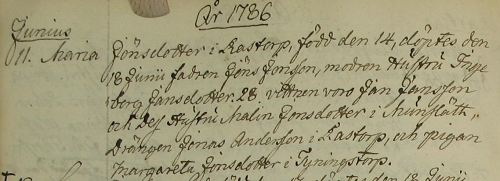 År 1786
Junius
11. Maria Jönsdotter i Kastorp, född den 14, döptes den
18 Junii fadren Jöns Jonsson, modren Hustru Inge
borg Jansdotter 28 vittnen voro Jan Jansson
och Dess Hustru Malin Jonsdotter i
Drängen Jonas Andersson i Kastorp, och pigan
Margareta Jonsdotter i Tyningstorp.
den 18 Junii